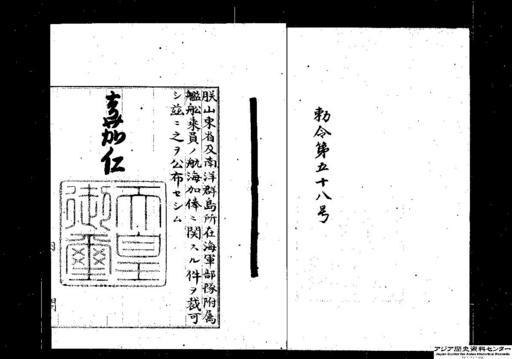 勅令第五十八号
朕山東省及南洋群島所在海軍部隊附属
艦舩乗員ノ航海加俸ニ関スル件ヲ裁可
シ茲ニ之ヲ公布セシム
嘉仁
天皇
御璽
アジア歴史資料センター
Japan Center for Asian Historical Records